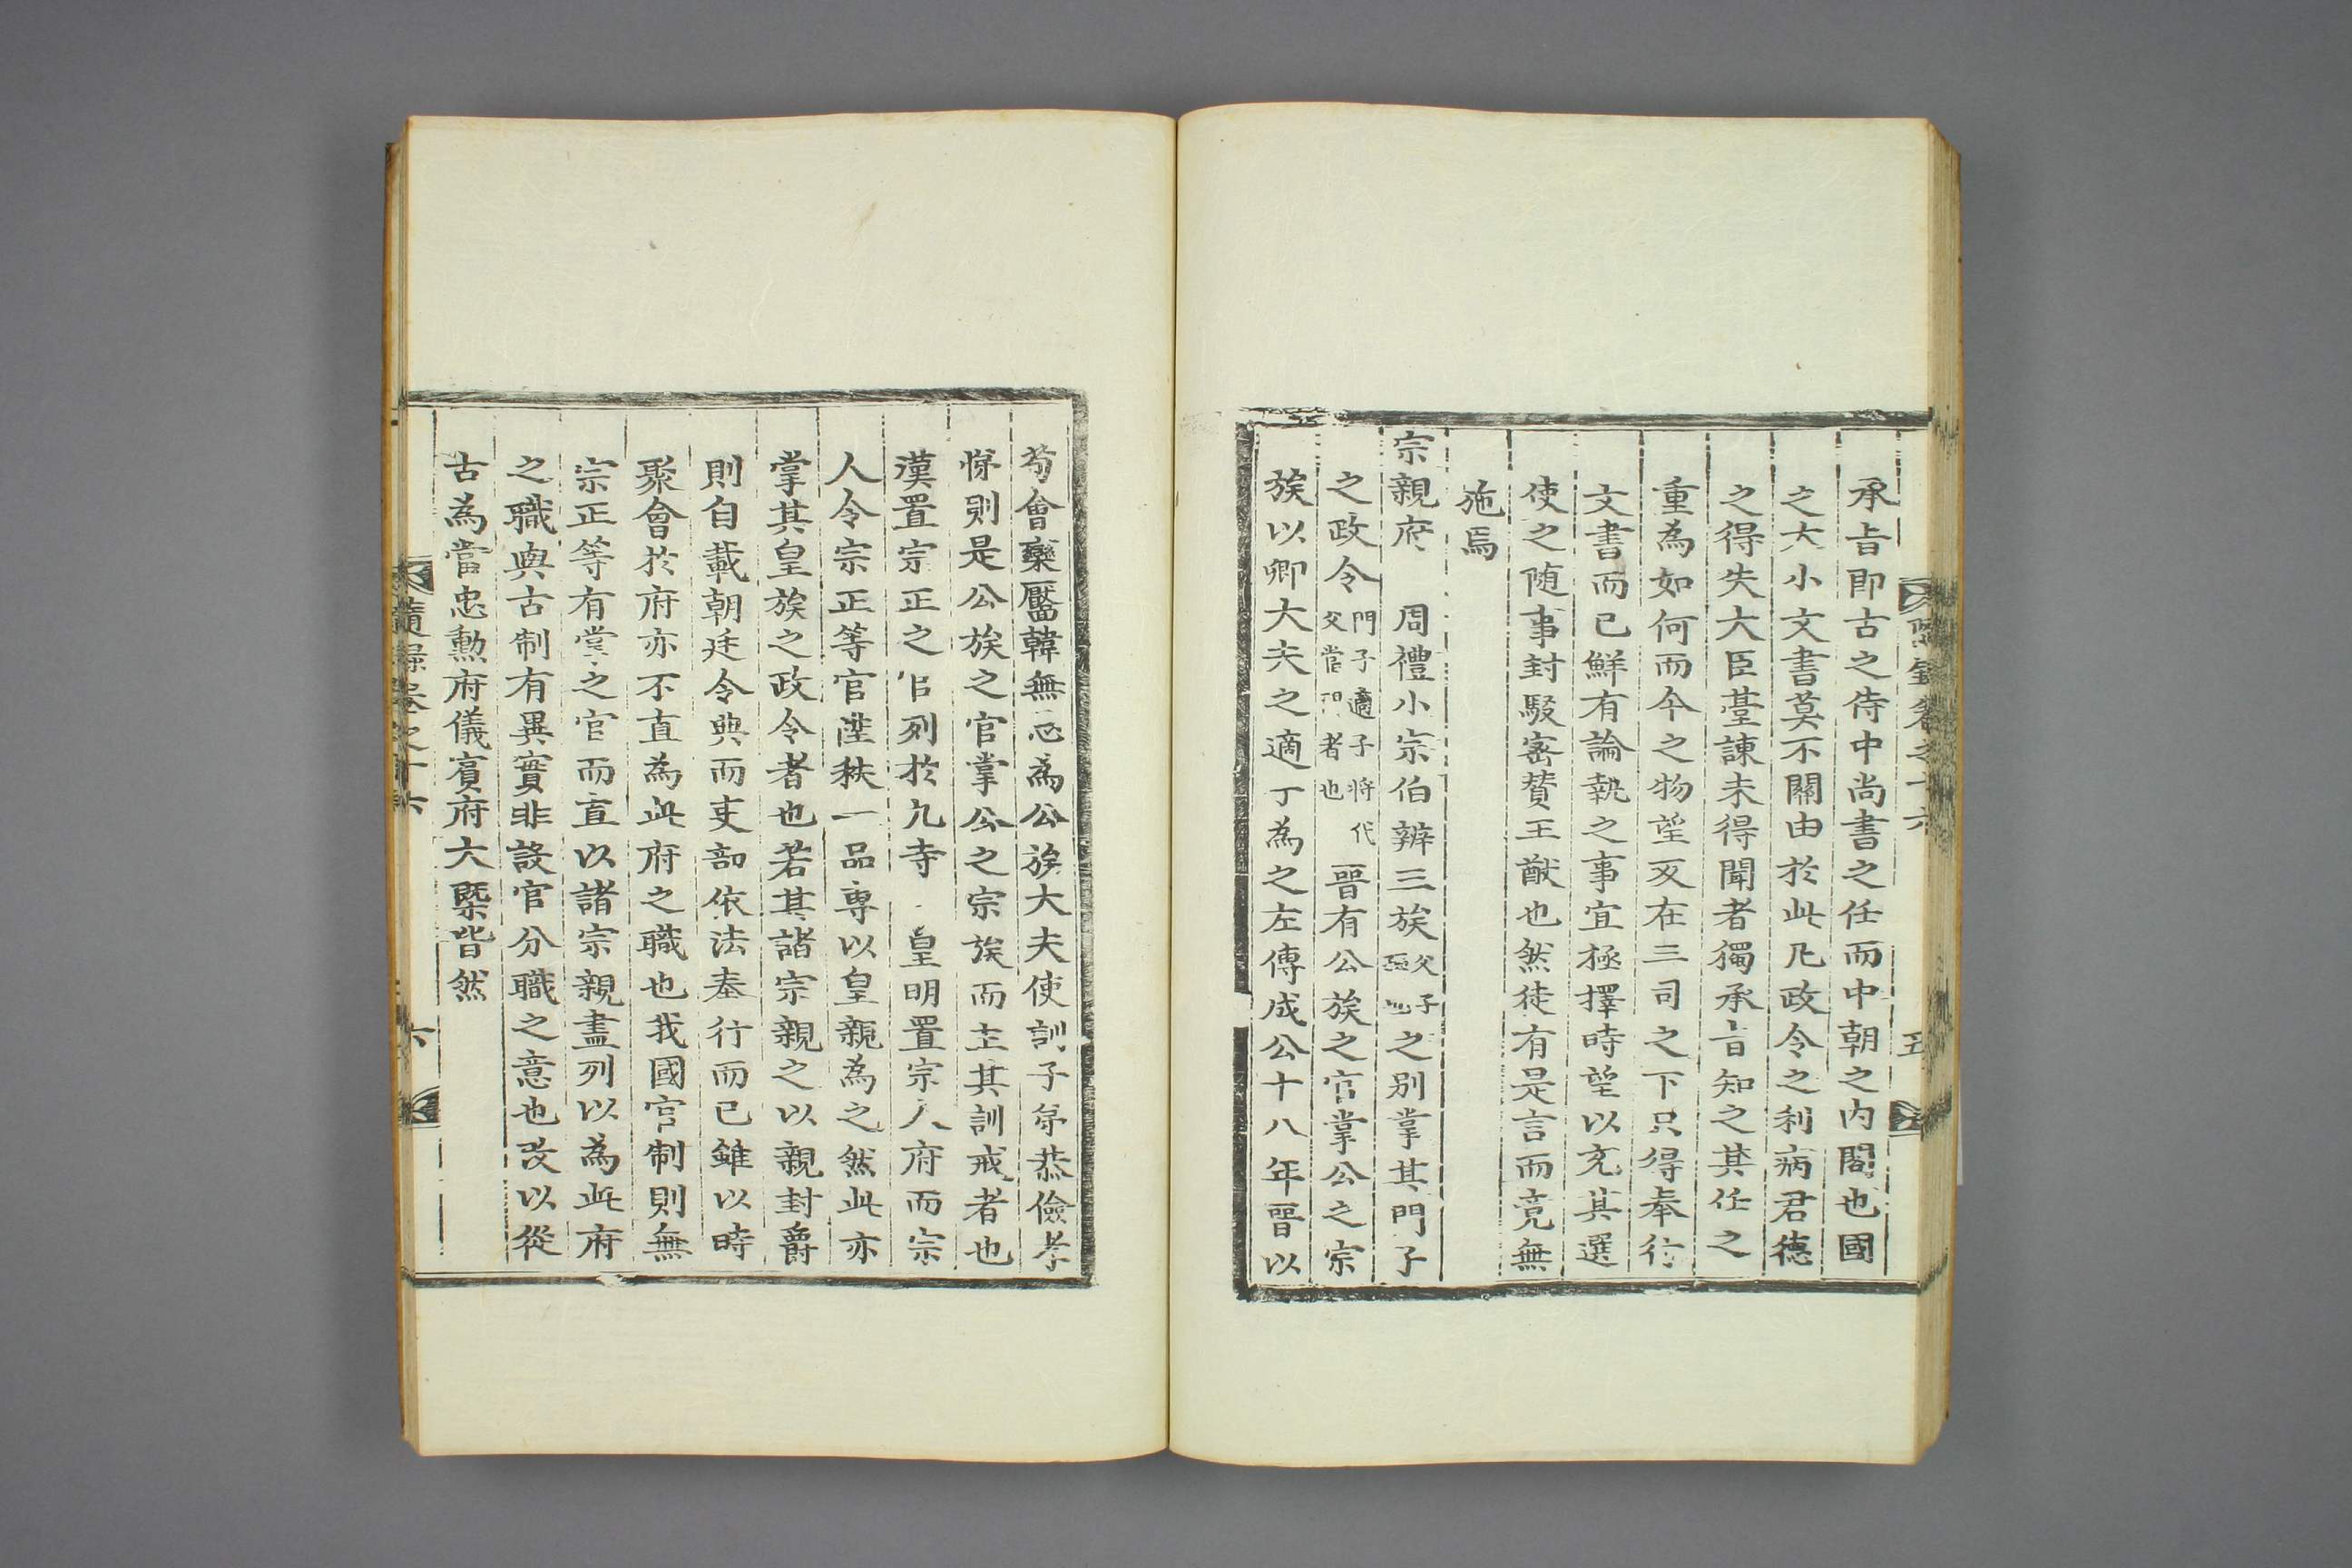 承旨即古之侍中尚書之任而中朝之内閣也國
之大小文書莫不關由於此凡政令之利病君德
之得失大臣臺諫未得聞者獨承旨知之其任之
重為如何而今之物望反在三司之下只得奉行
文書而已鮮有論執之事宜極擇時望以充其選
使之随事封駁密賛王猷也然徒有是言而竟無
施焉
宗親府 周禮小宗伯辨三族父子孫也之别掌其門子
之政令門子適子將代父當門者也晋有公族之官掌公之宗
族以卿大夫之適子為之左傳成公十八年晋以
五
荀會欒黶韓無忌為公族大夫使訓子弟恭儉孝
悌則是公族之官掌公之宗族而主其訓戒者也
漢置宗正之官列於九寺 皇明置宗人府而宗
人令宗正等官陞秩一品専以皇親為之然此亦
掌其皇族之政令者也若其諸宗親之以親封爵
則自載朝廷令典而吏部依法奉行而已雖以時
聚會於府亦不直為此府之職也我國官制則無
宗正等有掌之官而直以諸宗親盡列以為此府
之職與古制有異實非設官分職之意也改以從
古為當忠勲府儀賓府大槩皆然
隨録卷之十六
六